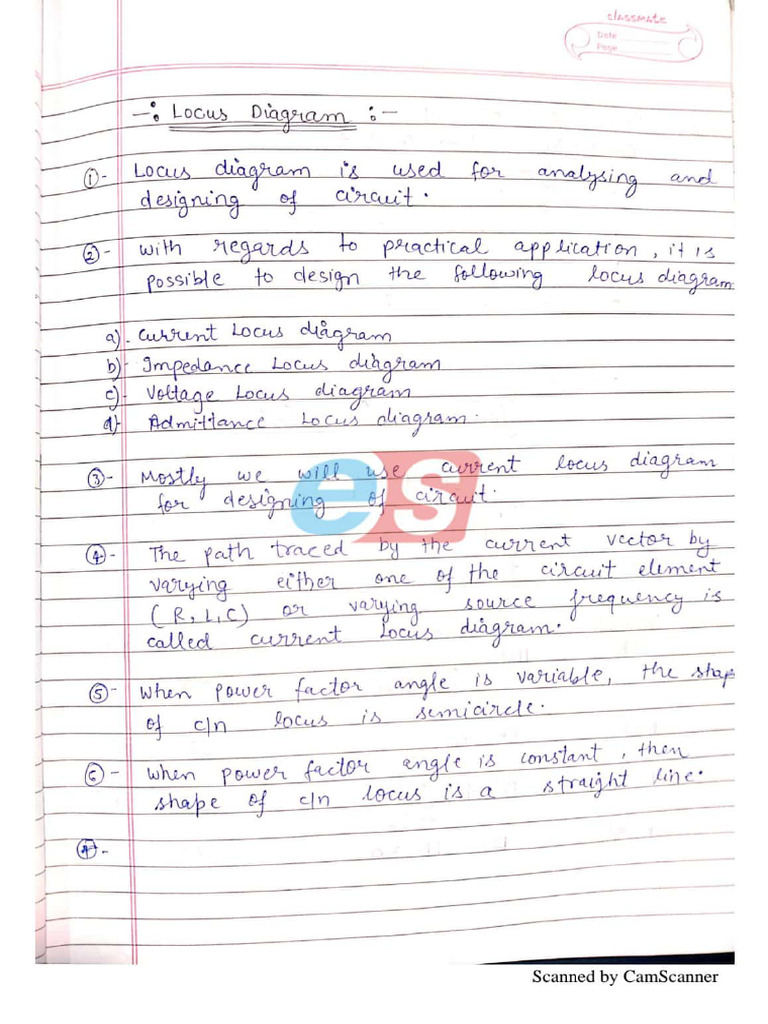 classmate
Date
Page
-: Locus Diagram :-
①- Locus diagram is used for analysing and
designing of circuit.
②- with regards to practical application, it is
possible to design the following locus diagram
a)- Current Locus diagram
b)- Impedance Locus diagram
c)- Voltage Locus diagram
d)- Admittance Locus diagram.
③- Mostly we will use current locus diagram
for designing of circuit.
es
④- The path traced by the current vector by
varying either one of the circuit element
(R, L, C) or varying source frequency is
called current Locus diagram.
⑤- When power factor angle is variable, the shap
of c/n locus is semicircle.
⑥- when power factor angle is constant, then
shape of c/n locus is a straight line.
⑦-
Scanned by CamScanner